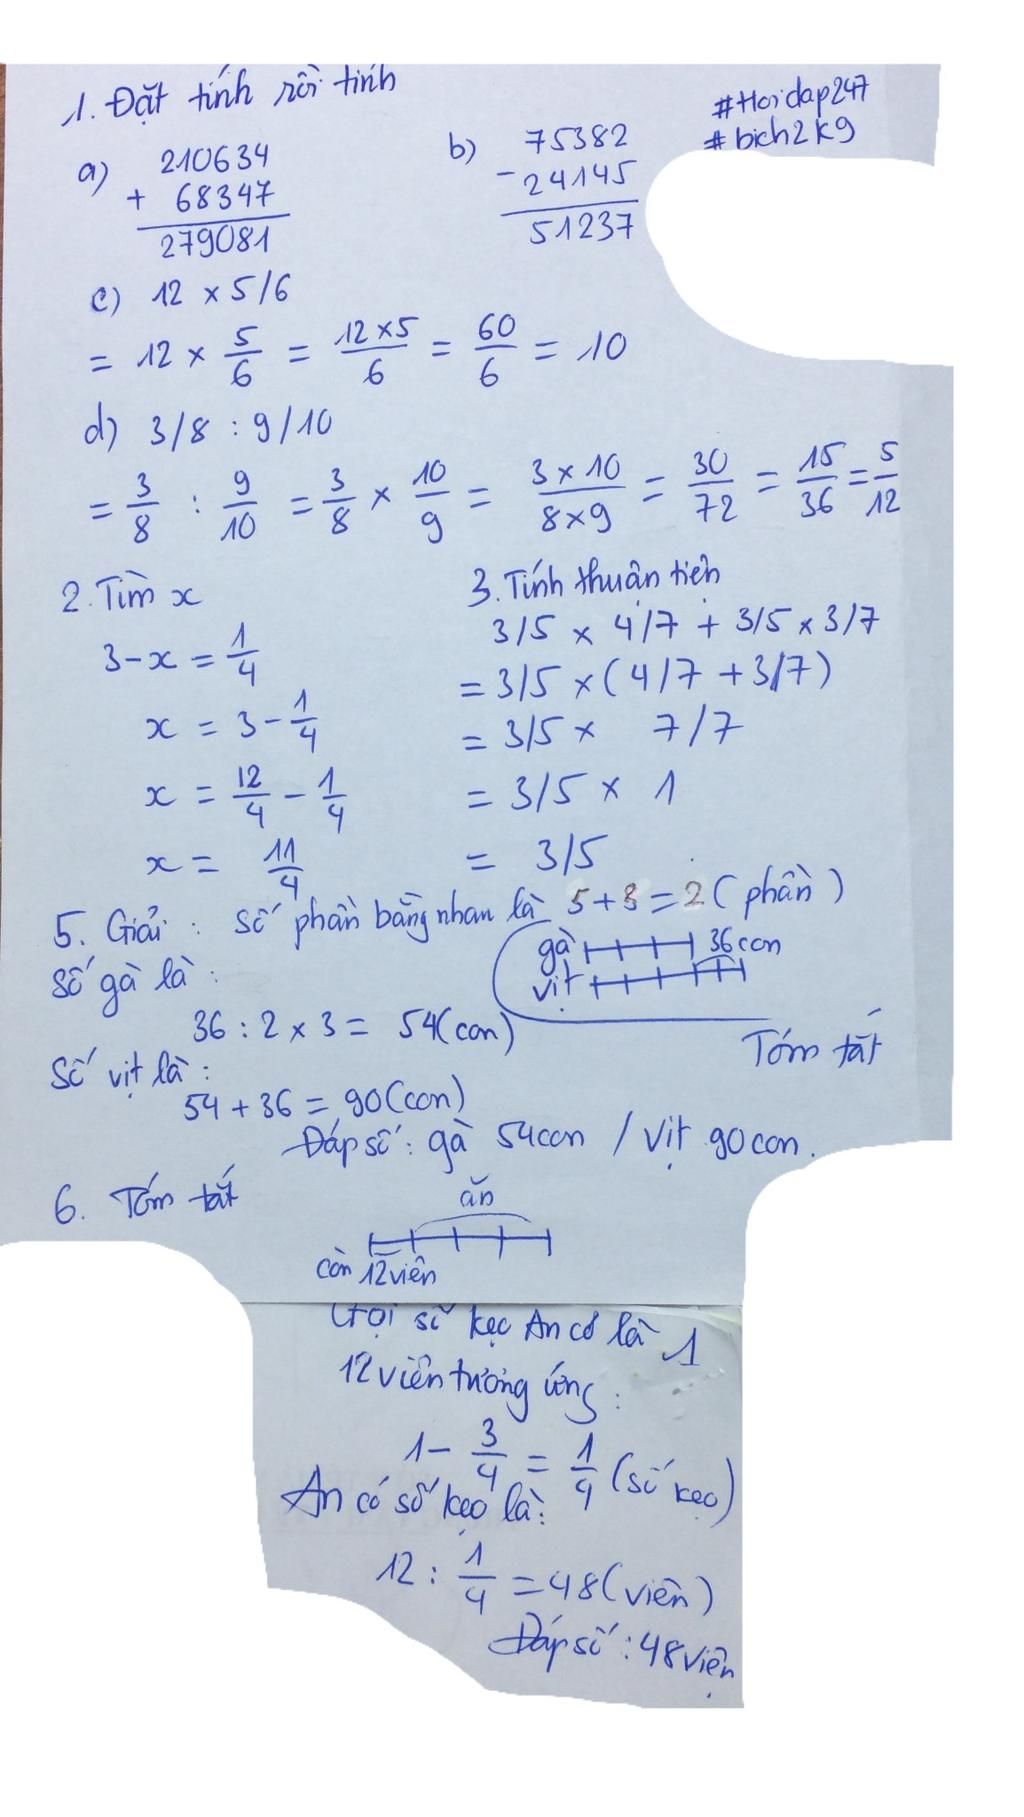 1. Đặt tính rồi tính
#Hoidap247
#bich2k9
a) 210634
+ 68347
279081
b) 75382
- 24145
51237
c) 12 x 5/6
= 12 x 5/6 = 12x5/6 = 60/6 = 10
d) 3/8 : 9/10
= 3/8 : 9/10 = 3/8 x 10/9 = 3 x 10/8x9 = 30/72 = 15/36 = 5/12
2. Tìm x
3 - x = 1/4
x = 3 - 1/4
x = 12/4 - 1/4
x = 11/4
3. Tính thuận tiện
3/5 x 4/7 + 3/5 x 3/7
= 3/5 x (4/7 + 3/7)
= 3/5 x 7/7
= 3/5 x 1
= 3/5
5. Giải: số phần bằng nhau là 5+3=2 (phần)
gà 36 con
vịt
Tóm tắt
Số gà là:
36 : 2 x 3 = 54(con)
Số vịt là:
54 + 36 = 90(con)
Đáp số: gà 54con / vịt 90con.
6. Tóm tắt
ăn
còn 12viên
Gọi số kẹo An có là 1
12viên tương ứng:
1 - 3/4 = 1/4 (số kẹo)
An có số kẹo là:
12 : 1/4 = 48(viên)
Đáp số: 48 viên